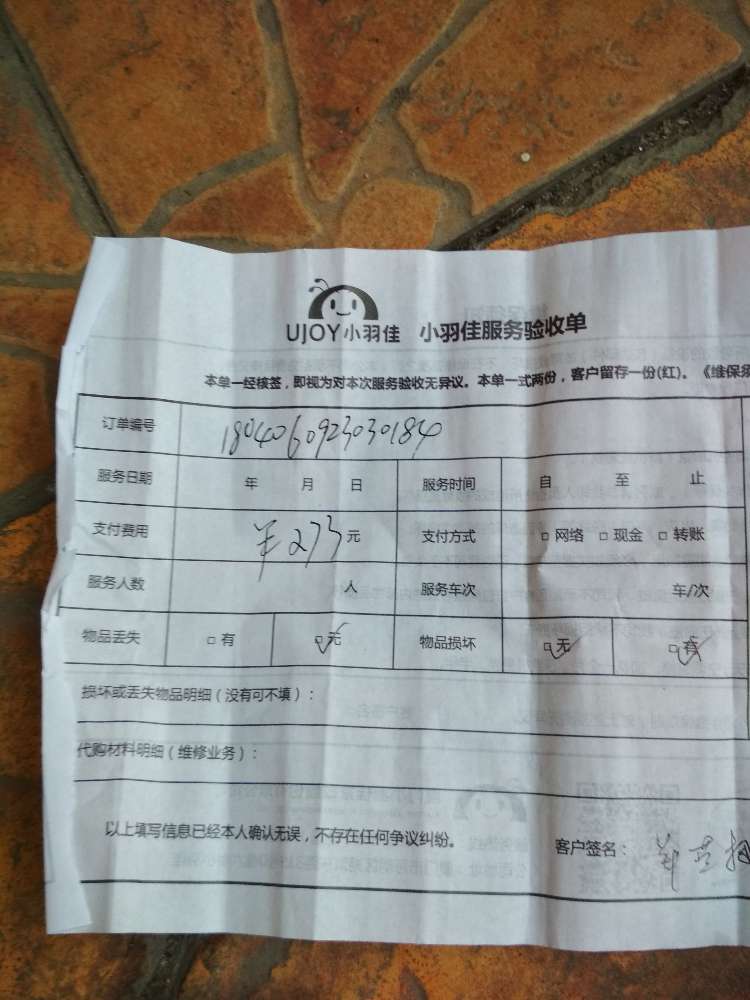 UJOY小羽佳 小羽佳服务验收单
本单一经核签，即视为对本次服务验收无异议。本单一式两份，客户留存一份(红)。《维保须
订单编号 1804060923030184
服务日期 年 月 日 服务时间 自 至 止
支付费用 ¥273元 支付方式 □ 网络 □ 现金 □ 转账
服务人数 人 服务车次 车/次
物品丢失 □ 有 □ 无 物品损坏 □ 无 □ 有
损坏或丢失物品明细（没有可不填）：
代购材料明细（维修业务）：
以上填写信息已经本人确认无误，不存在任何争议纠纷。 客户签名：